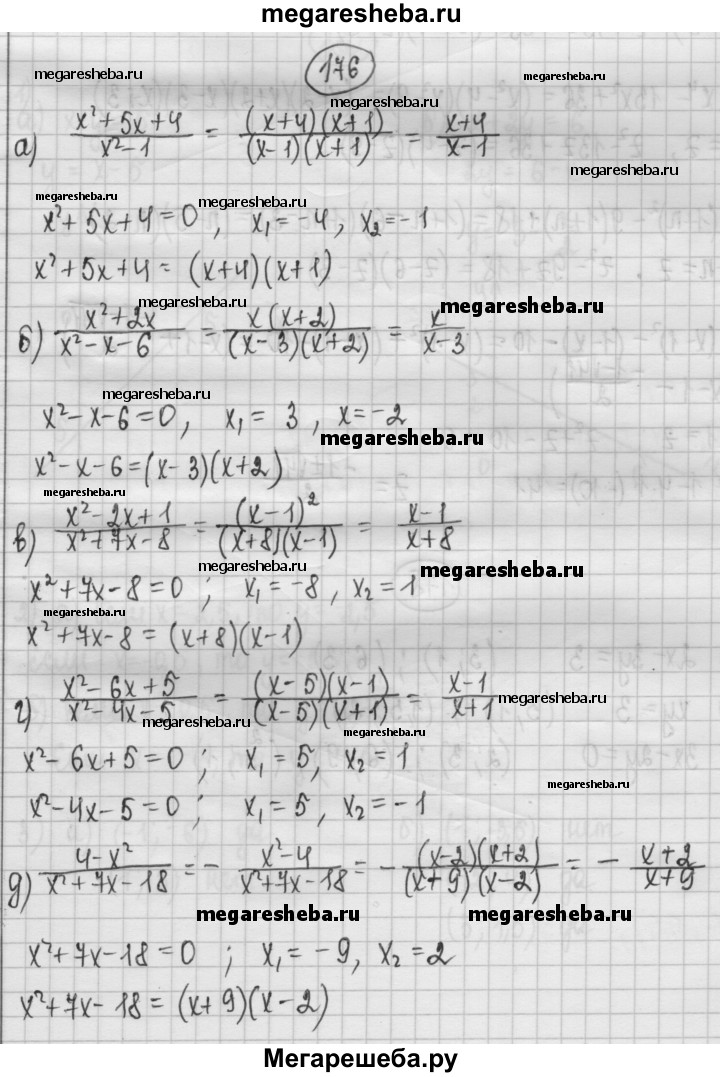 megaresheba.ru
176
megaresheba.ru
megaresheba.ru
а) (x²+5x+4)/(x²-1) = ((x+4)(x+1))/((x-1)(x+1)) = (x+4)/(x-1)
megaresheba.ru
megaresheba.ru
x²+5x+4=0, x₁=-4, x₂=-1
megaresheba.ru
x²+5x+4=(x+4)(x+1)
megaresheba.ru
megaresheba.ru
б) (x²+2x)/(x²-x-6) = (x(x+2))/((x-3)(x+2)) = x/(x-3)
megaresheba.ru
x²-x-6=0, x₁=3, x=-2
megaresheba.ru
x²-x-6=(x-3)(x+2)
megaresheba.ru
в) (x²-2x+1)/(x²+7x-8) = (x-1)²/((x+8)(x-1)) = (x-1)/(x+8)
megaresheba.ru
megaresheba.ru
x²+7x-8=0; x₁=-8, x₂=1
megaresheba.ru
x²+7x-8=(x+8)(x-1)
megaresheba.ru
г) (x²-6x+5)/(x²-4x-5) = ((x-5)(x-1))/((x-5)(x+1)) = (x-1)/(x+1)
megaresheba.ru
megaresheba.ru
x²-6x+5=0; x₁=5, x₂=1
megaresheba.ru
x²-4x-5=0; x₁=5, x₂=-1
megaresheba.ru
megaresheba.ru
д) (4-x²)/(x²+7x-18) = -(x²-4)/(x²+7x-18) = -((x-2)(x+2))/((x+9)(x-2)) = -(x+2)/(x+9)
megaresheba.ru
megaresheba.ru
x²+7x-18=0; x₁=-9, x₂=2
x²+7x-18=(x+9)(x-2)
Мегарешеба.ру